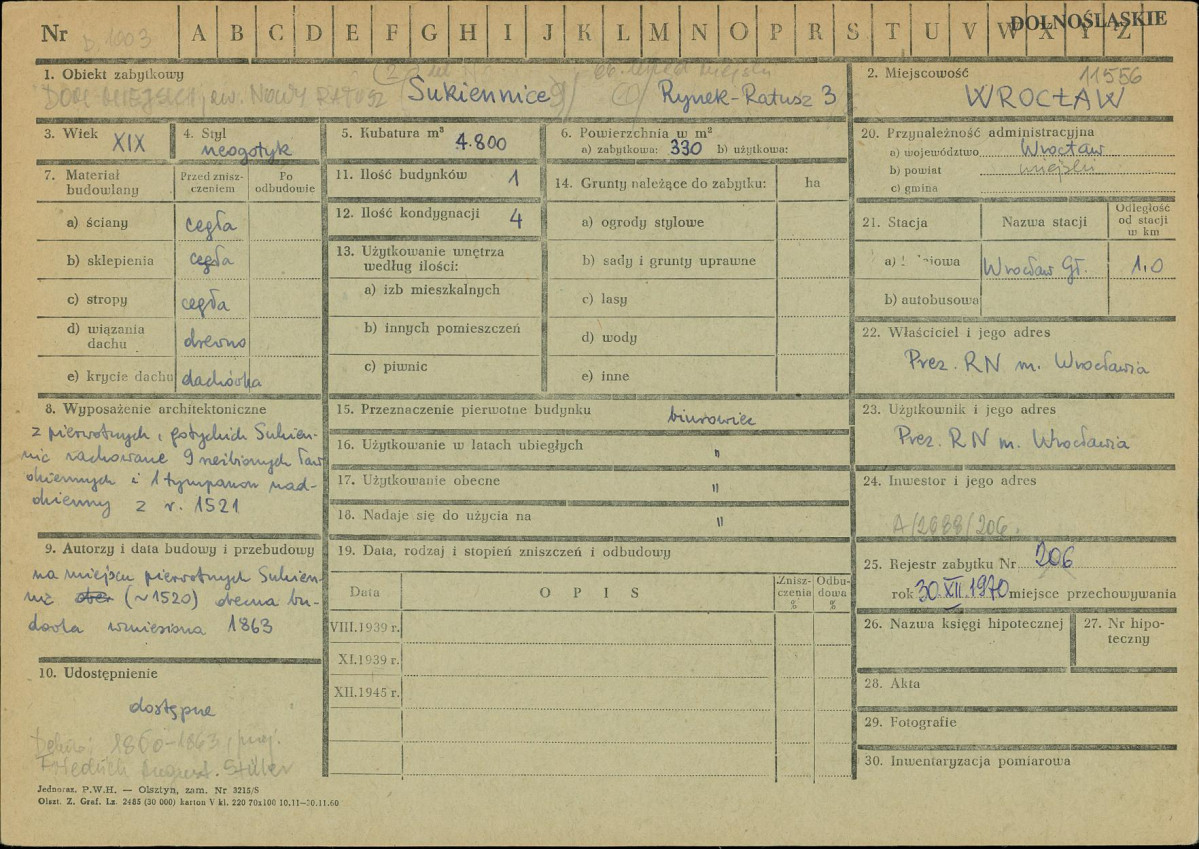 Nr
A B C D E F G H I J K L M N O P R S T U V W X Y Z
DOLNOŚLĄSKIE
1. Obiekt zabytkowy
DOM MIEJSKI, NOWY RATUSZ
Sukiennice 9
Rynek-Ratusz 3
2. Miejscowość
11556
WROCŁAW
3. Wiek XIX
4. Styl
neogotyk
5. Kubatura m³
4.800
6. Powierzchnia w m²
a) zabytkowa: 330 b) użytkowa:
7. Materiał budowlany
Przed znisz-
czeniem
Po
odbudowie
a) ściany cegła
b) sklepienia cegła
c) stropy cegła
d) wiązania
dachu drewno
e) krycie dachu dachówka
8. Wyposażenie architektoniczne
z pierwotnych, gotyckich Sukien-
nic zachowane 9
okiennych i 1 tympanon nad-
okienny z r. 1521
9. Autorzy i data budowy i przebudowy
na miejscu pierwotnych Sukien-
nic (~1520) obecna bu-
dowla wzniesiona 1863
10. Udostępnienie
dostępne
1860-1863, proj.
Friedrich August Stüler
11. Ilość budynków 1
12. Ilość kondygnacji 4
13. Użytkowanie wnętrza
według ilości:
a) izb mieszkalnych
b) innych pomieszczeń
c) piwnic
14. Grunty należące do zabytku: ha
a) ogrody stylowe
b) sady i grunty uprawne
c) lasy
d) wody
e) inne
15. Przeznaczenie pierwotne budynku biurowiec
16. Użytkowanie w latach ubiegłych "
17. Użytkowanie obecne "
18. Nadaje się do użycia na "
19. Data, rodzaj i stopień zniszczeń i odbudowy
Data OPIS
Znisz-
czenia
%
Odbu-
dowa
%
VIII.1939 r.
XI.1939 r.
XII.1945 r.
20. Przynależność administracyjna
a) województwo Wrocław
b) powiat miejski
c) gmina
21. Stacja
Nazwa stacji
Odległość
od stacji
w km
a) Wrocław Gł. 1,0
b) autobusowa
22. Właściciel i jego adres
Prez. RN m. Wrocławia
23. Użytkownik i jego adres
Prez. RN m. Wrocławia
24. Inwestor i jego adres
A/2688/206.
25. Rejestr zabytku Nr 206
rok 30.XII.1970 miejsce przechowywania
26. Nazwa księgi hipotecznej
27. Nr hipo-
teczny
28. Akta
29. Fotografie
30. Inwentaryzacja pomiarowa
Jednoraz. P.W.H. — Olsztyn, zam. Nr 3215/S
Olszt. Z. Graf. Lz. 2485 (30 000) karton V kl. 220 70x100 10.11—30.11.60